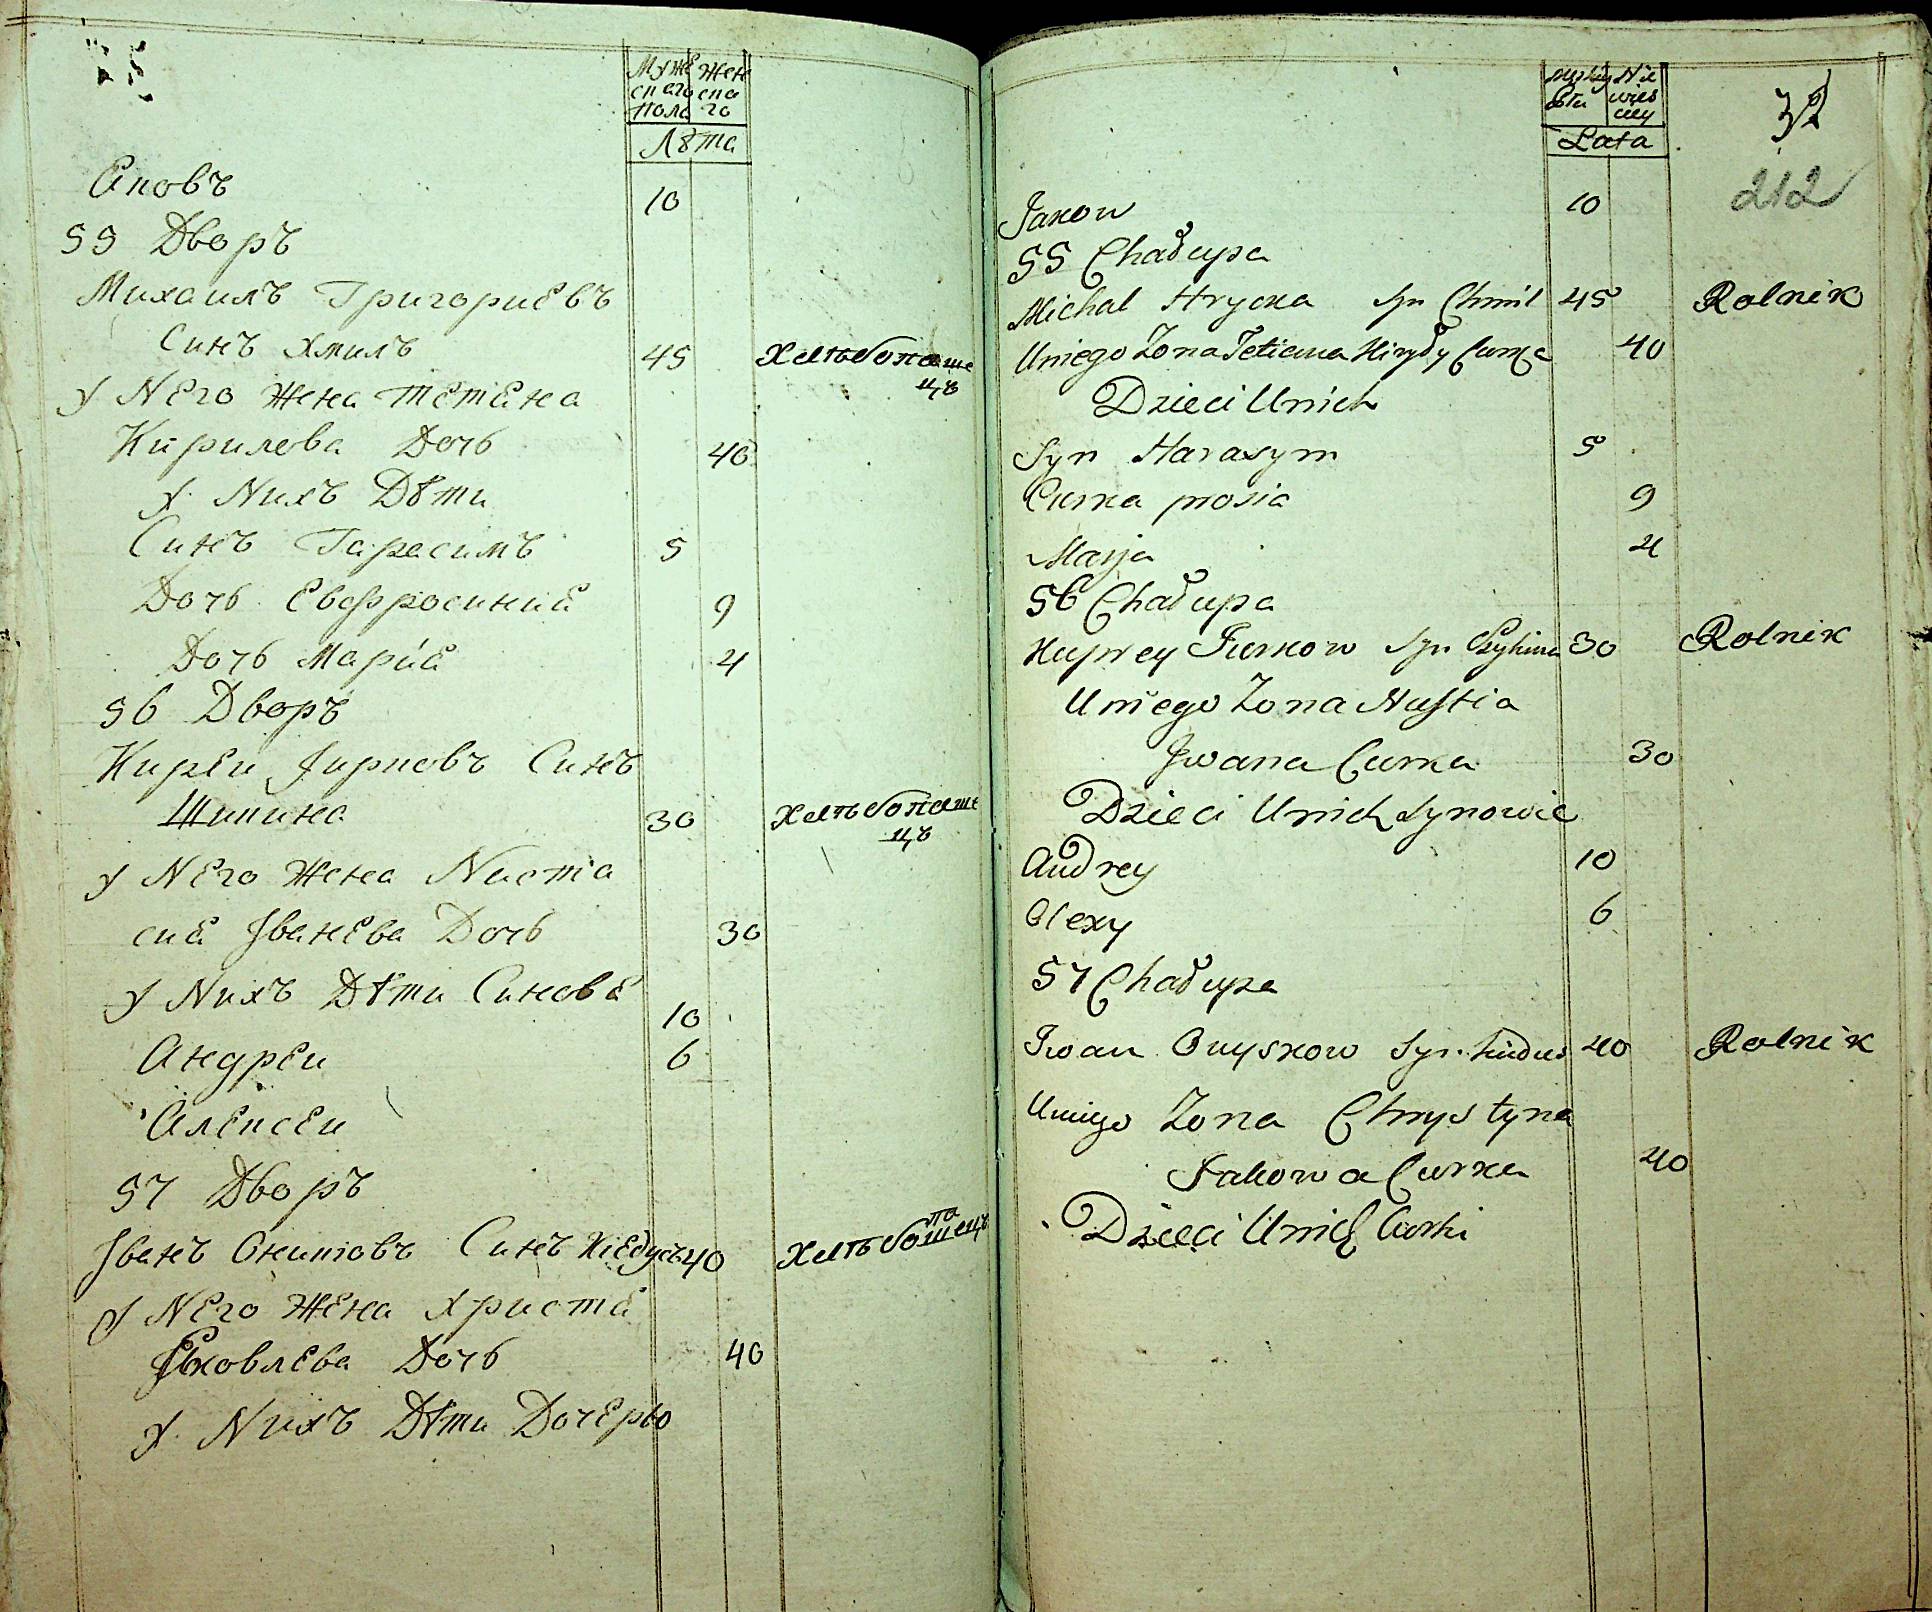 Муже Жен
скаго ска
пола го
Лѣта
Яковъ 10
55 Дворъ
Михаилъ Григориевъ
Синъ Хмилъ 45 Хлѣбопаше
цъ
У Него Жена Тетяна
Кирилова Дочь 40
У Нихъ Дѣти
Синъ Гарасимъ 5
Дочь Евфросиния 9
Дочь Мария 4
56 Дворъ
Кирей Юрковъ Синъ
30 Хлѣбопаше
цъ
У Него Жена Наста
сия Иванева Дочь 30
У Нихъ Дѣти Синовя
10
Андрей 6
Алексей
57 Дворъ
Иванъ Синъ 40 Хлѣбопашецъ
У Него Жена Христя
Яковлева Дочь 40
У Нихъ Дѣти Дочерю
Nie
wies
ciey
Lata
32
212
Jakow 10
55 Chałupa
Michal Hrycka Syn Chmil 45 Rolnik
Uniego Zona Tetiana Curka 40
Dzieci Unich
Syn Harasym 5
Curka prosia 9
Marja 4
56 Chałupa
Jurkow Syn 30 Rolnik
Uniego Zona Nastia
Jwana Curka 30
Dzieci Unich Synowie
Andrey 10
Olexy 6
57 Chałupa
Iwan Onyskow Syn 40 Rolnik
Uniego Zona Chrystyna
Jakowa Curka 40
Dzieci Unich Curki